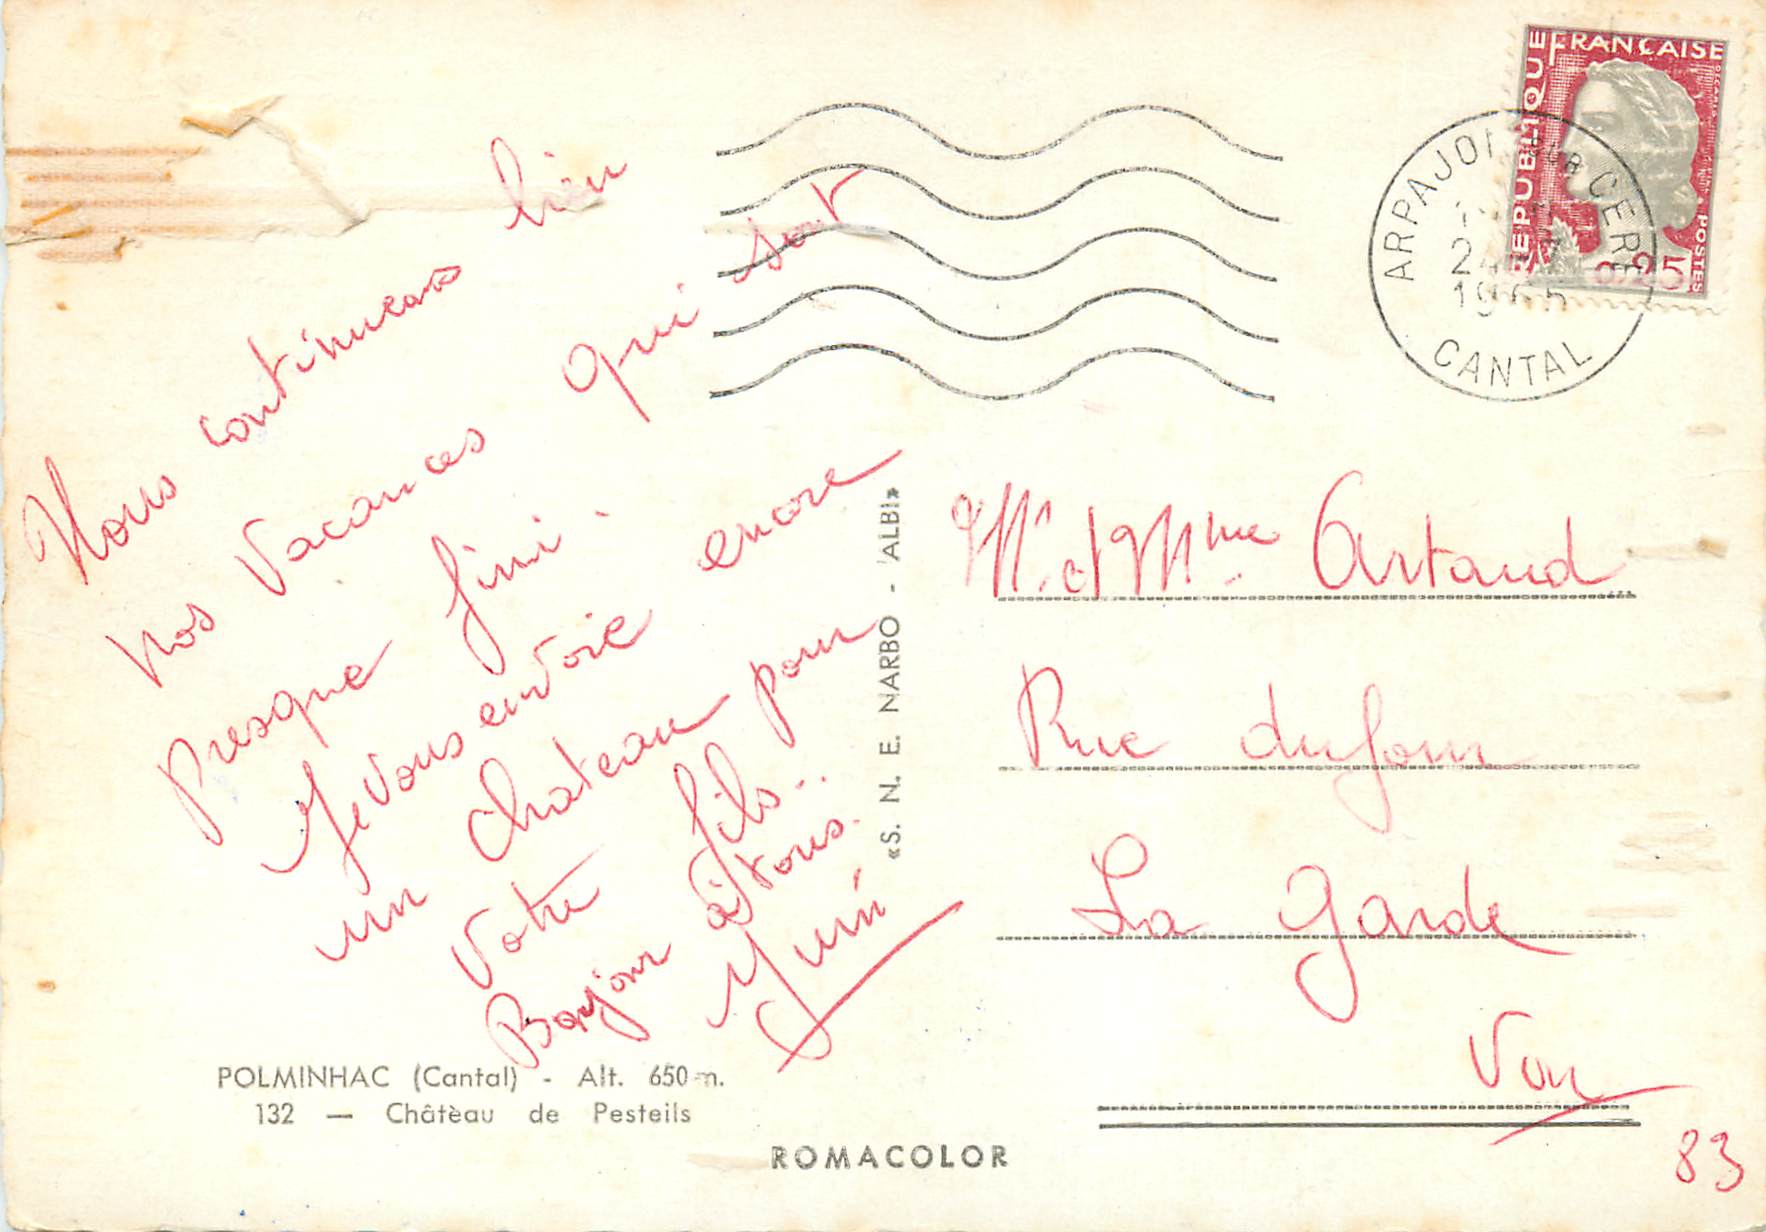 Nous continuons bien
nos vacances qui sont
presque fini.
Je vous envoie encore
un chateau pour
votre fils..
Bonjour à tous.
POLMINHAC (Cantal) - Alt. 650 m.
132 — Château de Pesteils
ROMACOLOR
«S. N. E. NARBO - ALBI»
RÉPUBLIQUE FRANÇAISE
POSTES
0,25
ARPAJON SUR CERE
24-7
1965
CANTAL
M. et Mme Artaud
Rue dufour
La Garde
Var
83